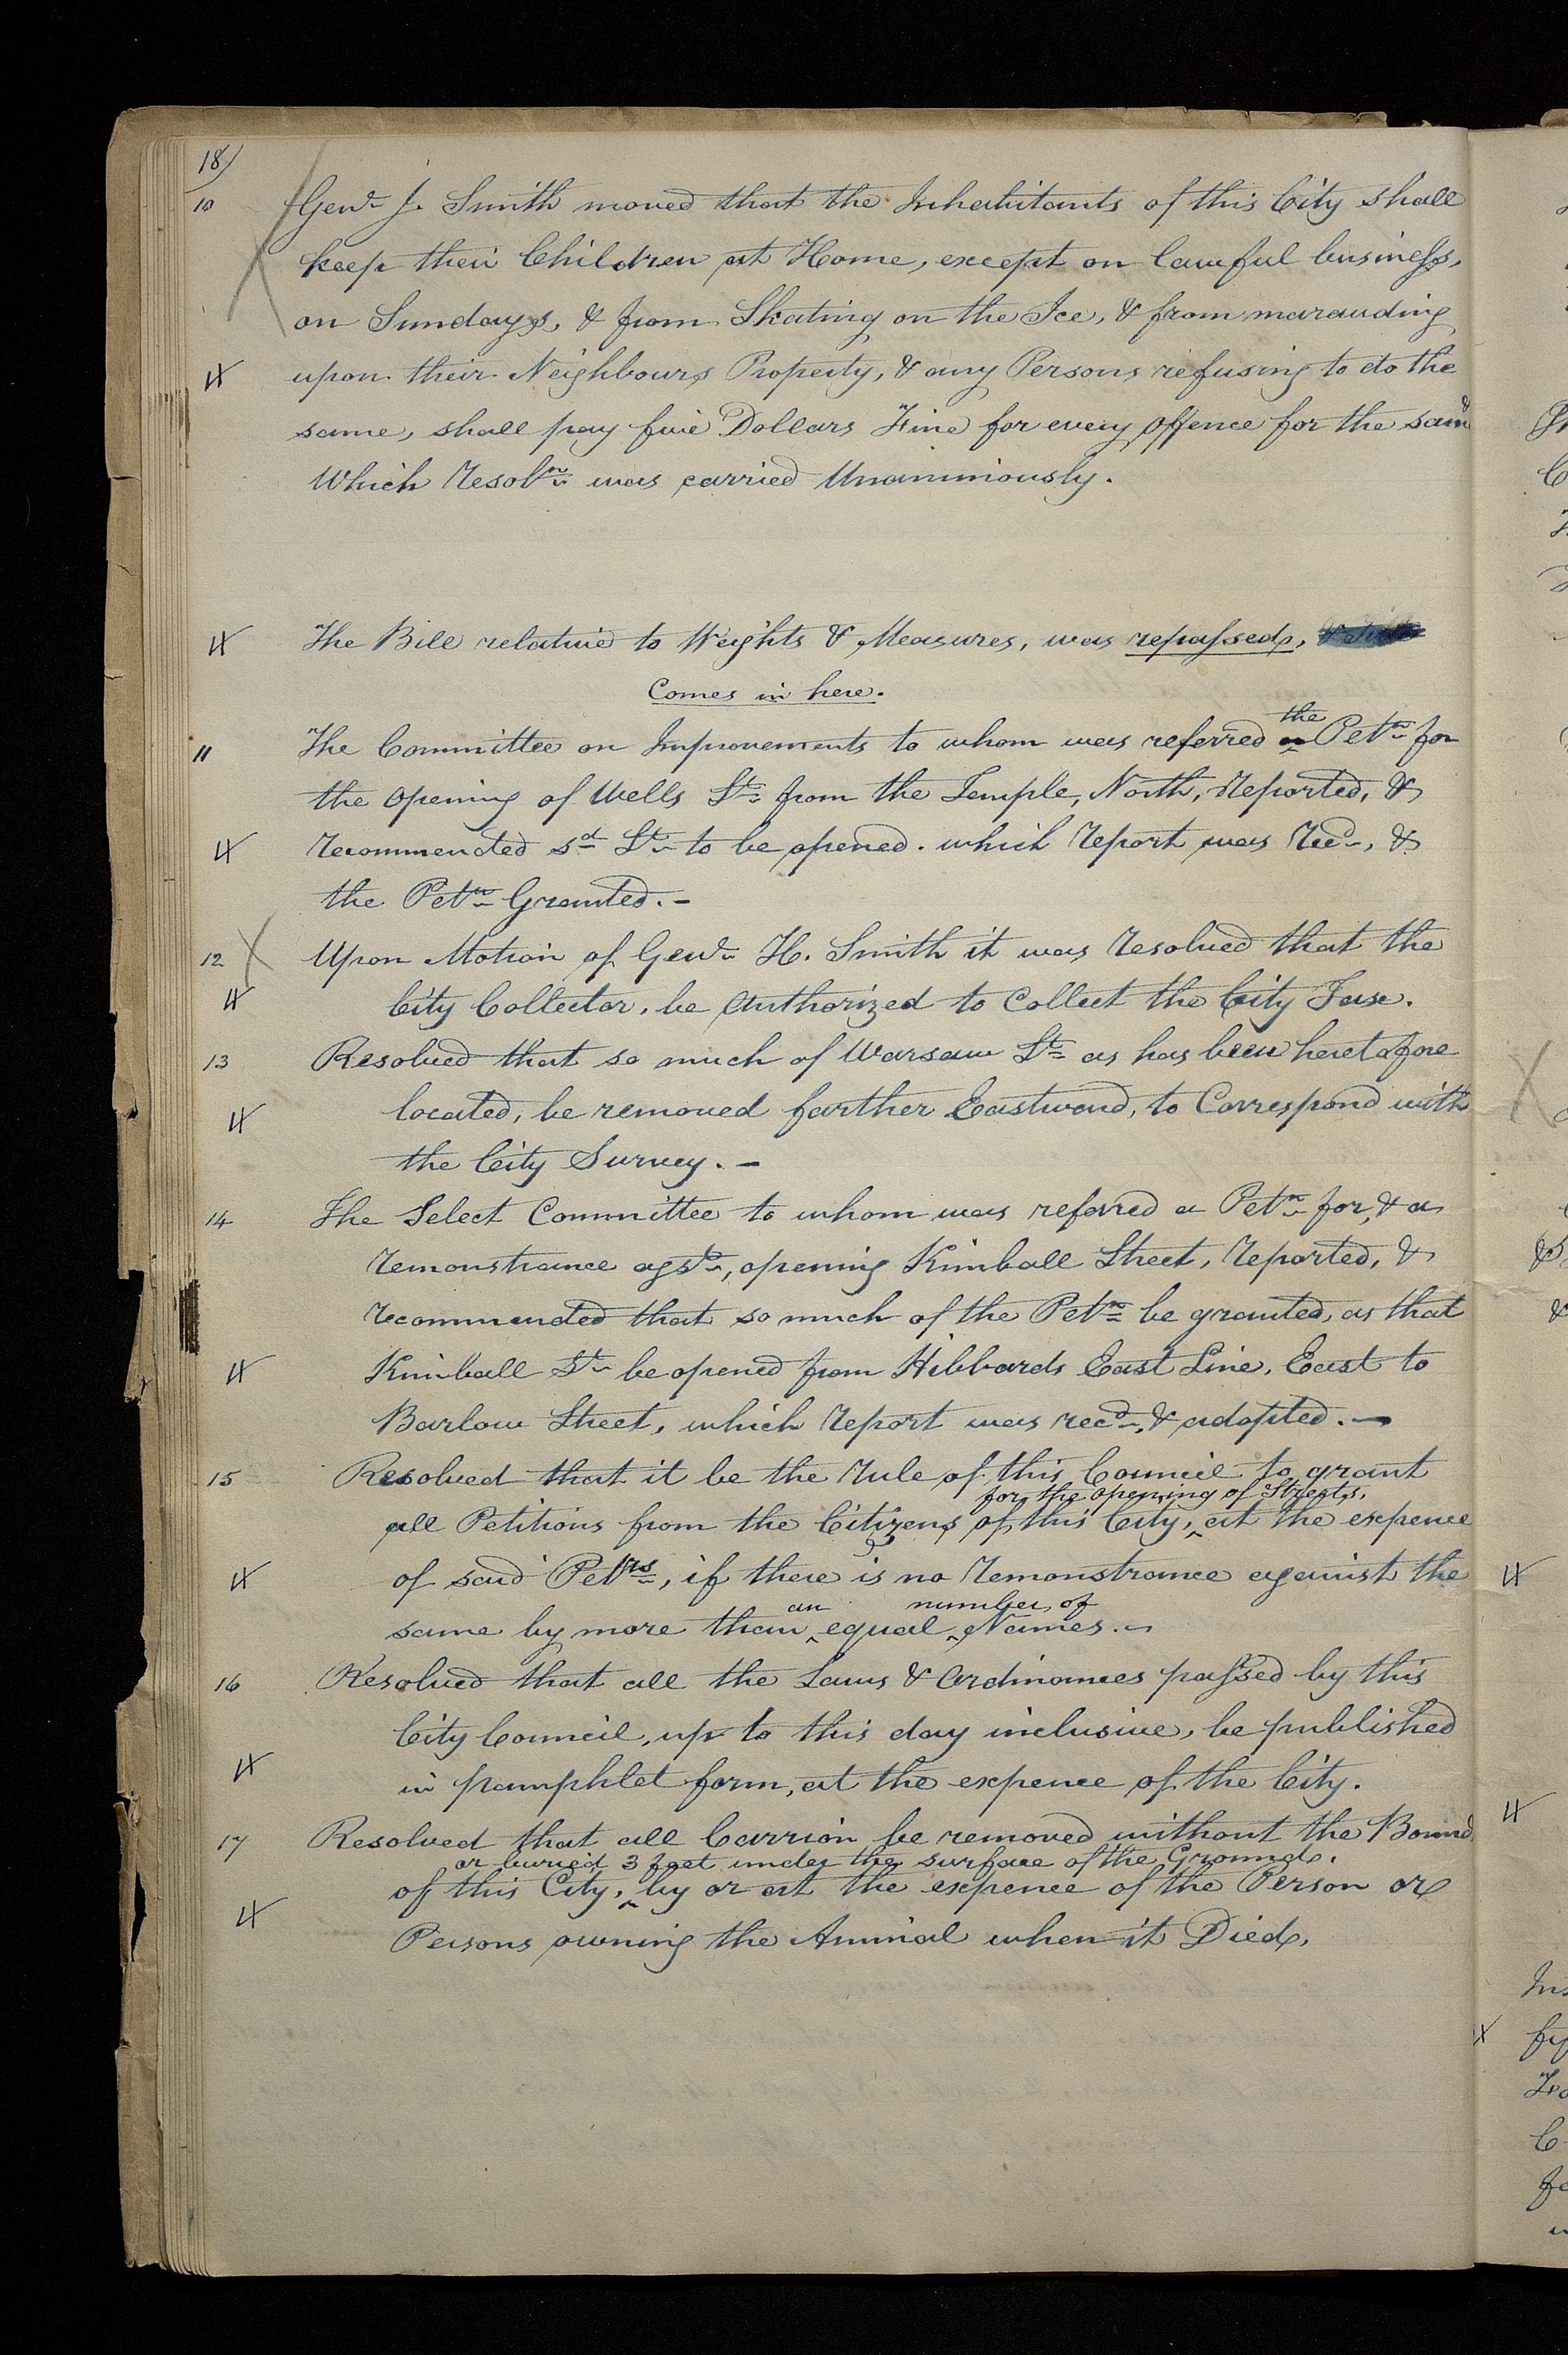 18
10 Genl. J. Smith moved that the Inhabitants of this City shall
keep their Children at Home, except on lawful business,
on Sundays, & from Skating on the Ice, & from marauding
upon their Neighbours Property, & any Persons refusing to do the
same, shall pay five Dollars Fine for every offence for the same
Which resoln. was carried Unanimously.
The Bill relative to Weights & Measures, was repassed,
Comes in here.
the
11 The Committee on Improvements to whom was referred a Petn. for
the opening of Wells St. from the Temple, North, reported, &
recommended sd. St. to be opened. which report was recd., &
the Petn. Granted.-
12 X Upon Motion of Genl. H. Smith it was resolved that the
City Collector, be Authorized to Collect the City Tax.
13 Resolved that so much of Warsaw St. as has been heretofore
located, be removed farther Eastward, to Correspond with
the City Survey.-
14 The Select Committee to whom was referred a Petn. for, & a
remonstrance agst., opening Kimball Street, reported, &
recommended that so much of the Petn. be granted, as that
Kimball St. be opened from Hibbards East Line, East to
Barlow Street, which report was recd., & adopted.-
15 Resolved that it be the rule of this Council to grant
for the opening of Streets,
all Petitions from the Citizens of this City, ‸ at the expence
of said Petrs., if there is no remonstrance against the
an number of
same by more than ‸ equal ‸ Names.-
16 Resolved that all the Laws & Ordinances passed by this
City Council, up to this day inclusive, be published
in pamphlet form, at the expence of the City.
17 Resolved that all Carrion be removed without the Bounds
or buried 3 feet under the surface of the Ground.
of this City, ‸ by or at the expence of the Person or
Persons owning the Animal when it Died,